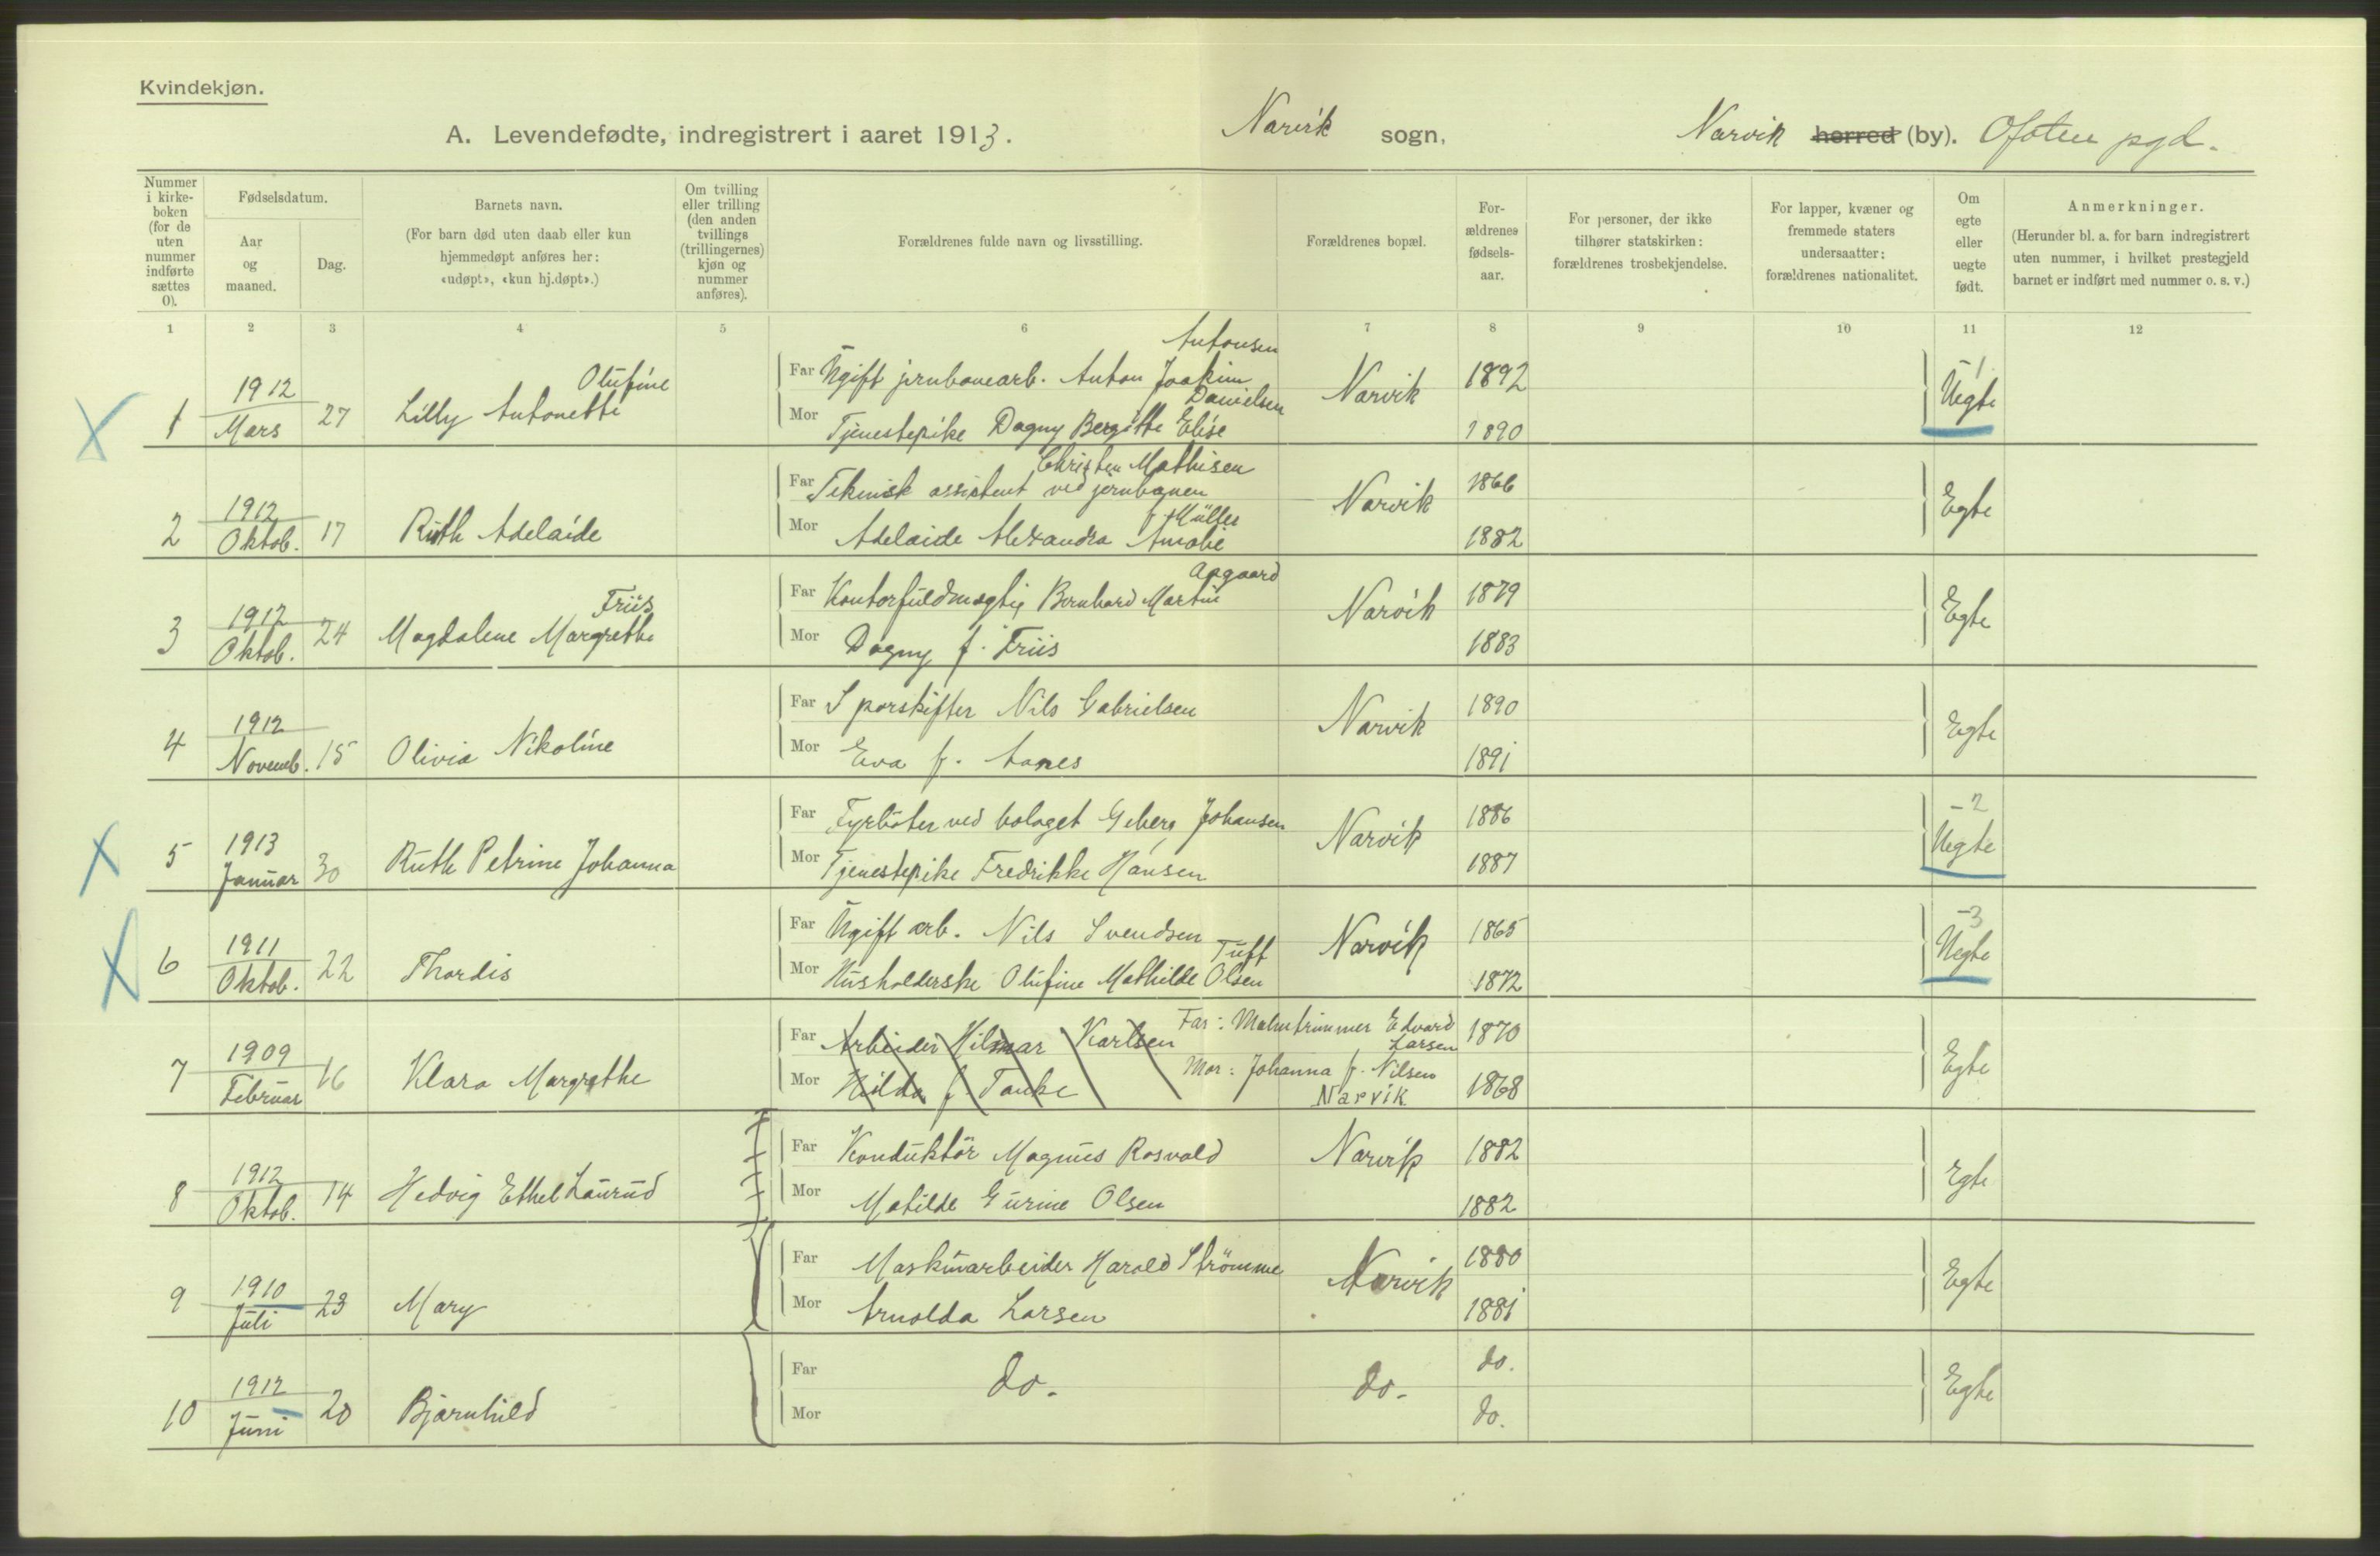 Kvindekjøn.
A. Levendefødte, indregistrert i aaret 1913.
Narvik sogn,
Narvik herred (by). Ofoten pgd.
Nummer i kirke-boken (for de uten nummer indførte sættes 0).
Fødselsdatum.
Aar og maaned.
Dag.
Barnets navn.
(For barn død uten daab eller kun hjemmedøpt anføres her: «udøpt», «kun hj.døpt».)
Om tvilling eller trilling (den anden tvillings (trillingernes) kjøn og nummer anføres).
Forældrenes fulde navn og livsstilling.
Forældrenes bopæl.
For-ældrenes fødsels-aar.
For personer, der ikke tilhører statskirken: forældrenes trosbekjendelse.
For lapper, kvæner og fremmede staters undersaatter: forældrenes nationalitet.
Om egte eller uegte født.
Anmerkninger.
(Herunder bl. a. for barn indregistrert uten nummer, i hvilket prestegjeld barnet er indført med nummer o. s. v.)
1 2 3 4 5 6 7 8 9 10 11 12
1 1912 Mars 27 Lilly Antonette Olufine
Far Ugift jernbanearb. Anton Joakim Antonsen Narvik 1892 Uegte 1
Mor Tjenestepike Dagny Bergitte Elise Danielsen 1890
2 1912 Oktob. 17 Ruth Adelaide
Far Teknisk assistent ved jernbanen Christen Mathisen Narvik 1866 Egte
Mor Adelaide Alexandra Amalie f. Müller 1882
3 1912 Oktob. 24 Magdalene Margrethe Friis
Far Kontorfuldmægtig Bernhard Martin Aagaard Narvik 1879 Egte
Mor Dagny f. Friis 1883
4 1912 Novemb. 15 Olivia Nikoline
Far Sporskifter Nils Gabrielsen Narvik 1890 Egte
Mor Eva f. Aanes 1891
5 1913 Januar 30 Ruth Petrine Johanna
Far Fyrbøter ved bolaget Johansen Narvik 1886 Uegte - 2
Mor Tjenestepike Fredrikke Hansen 1887
6 1911 Oktob. 22 Thordis
Far Ugift arb. Nils Svendsen Tuft Narvik 1865 Uegte - 3
Mor Husholderske Olufine Mathilde Olsen 1872
7 1909 Februar 16 Klara Margrethe
Far Arbeider Hilmar Karlsen Far: Malmtrimmer Edvard Larsen 1870 Egte
Mor Hilda f. Tanke Mor: Johanna f. Nilsen Narvik 1868
8 1912 Oktob. 14 Hedvig Ethel Laurud
Far Konduktør Magnus Rosvold Narvik 1882 Egte
Mor Matilde Gurine Olsen 1882
9 1910 Juli 23 Mary
Far Maskinarbeider Harald Strömme Narvik 1880 Egte
Mor Arnolda Larsen 1881
10 1912 Juni 20 Bjarnhild
Far do. do. do. Egte
Mor do.